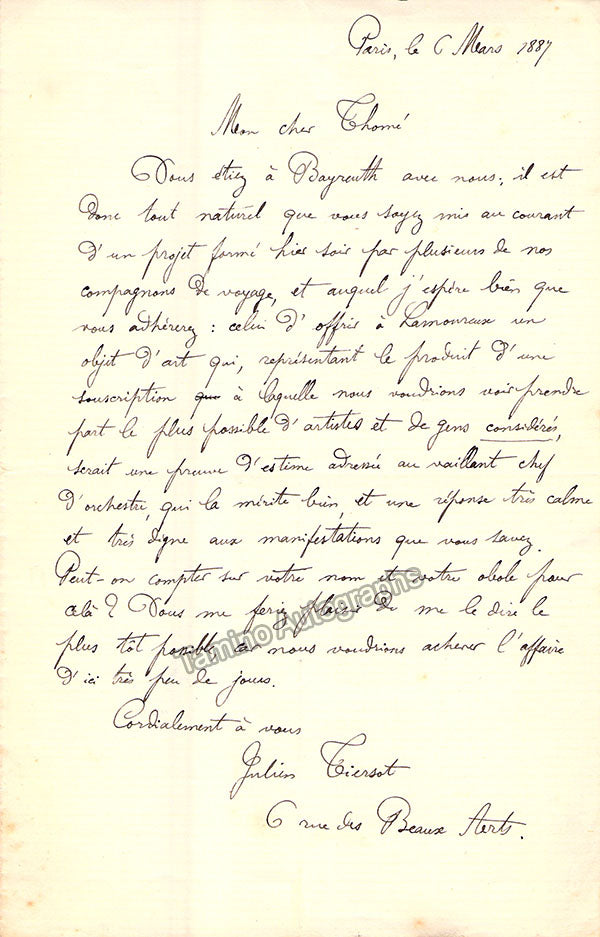 Paris, le 6 Mars 1887
Mon cher Thomé
Vous étiez à Bayreuth avec nous ; il est
donc tout naturel que vous soyez mis au courant
d'un projet formé hier soir par plusieurs de nos
compagnons de voyage, et auquel j'espère bien que
vous adhérerez : celui d'offrir à Lamoureux un
objet d'art qui, représentant le produit d'une
souscription que à laquelle nous voudrions voir prendre
part le plus possible d'artistes et de gens considérés,
serait une preuve d'estime adressée au vaillant chef
d'orchestre, qui la mérite bien, et une réponse très calme
et très digne aux manifestations que vous savez.
Peut-on compter sur votre nom et votre obole pour
celà ? Vous me feriez plaisir de me le dire le
plus tôt possible, car nous voudrions achever l'affaire
d'ici très peu de jours.
Cordialement à vous
Julien Tiersot
6 rue des Beaux Arts.
Tamino Autographs